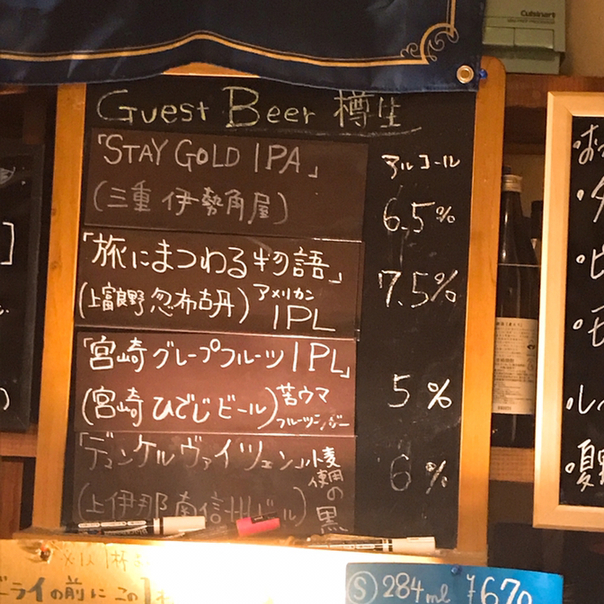 Cuisinart
Guest Beer 樽生
アルコール
「STAY GOLD IPA」
(三重 伊勢角屋)
6.5%
「旅にまつわる物語」
(上富良野 忽布古丹) アメリカン IPL
7.5%
「宮崎グレープフルーツ IPL」
(宮崎 ひでじビール) 苦ウマ フルーツジンジー
5%
「デュンケルヴァイツェン」小麦使用の黒
(上伊那 南信州ビール)
6%
ドライの前にこの
Ⓢ 284ml ¥670